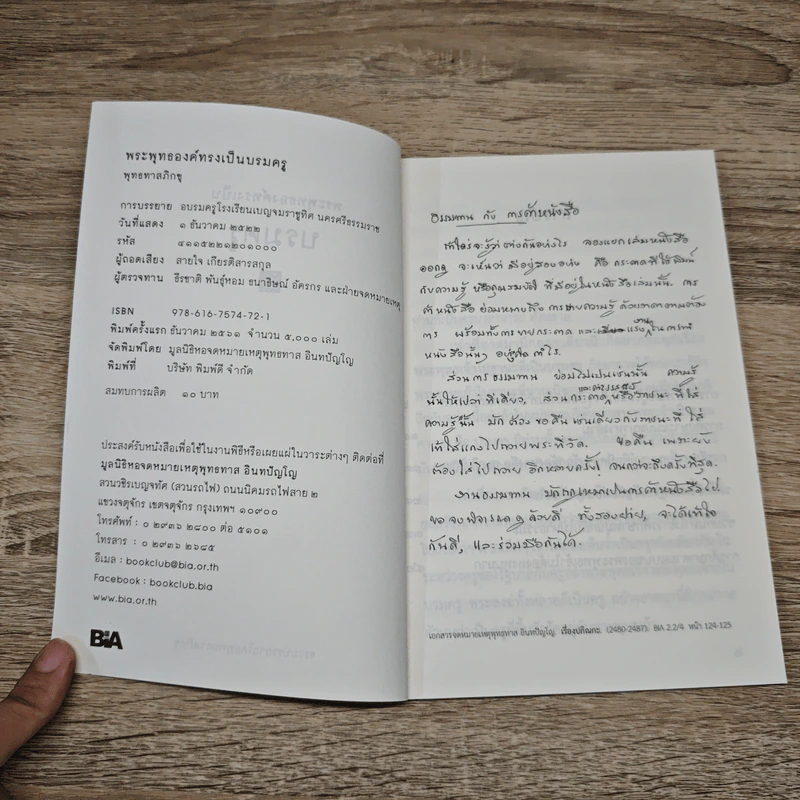 พระพุทธองค์ทรงเป็นบรมครู
พุทธทาสภิกขุ
การบรรยาย อบรมครูโรงเรียนเบญจมราชูทิศ นครศรีธรรมราช
วันที่แสดง ๑ ธันวาคม ๒๕๒๒
รหัส ๔๑๑๕๒๒๑๒๐๑๐๐๐
ผู้ถอดเสียง สายใจ เกียรติสารสกุล
ผู้ตรวจทาน ธีรชาติ พันธุ์หอม ธนาธิษณ์ อัครกร และฝ่ายจดหมายเหตุ
ISBN 978-616-7574-72-1
พิมพ์ครั้งแรก ธันวาคม ๒๕๖๑ จำนวน ๕,๐๐๐ เล่ม
จัดพิมพ์โดย มูลนิธิหอจดหมายเหตุพุทธทาส อินทปัญโญ
พิมพ์ที่ บริษัท พิมพ์ดี จำกัด
สมทบการผลิต ๑๐ บาท
ประสงค์รับหนังสือเพื่อใช้ในงานพิธีหรือเผยแผ่ในวาระต่างๆ ติดต่อที่
มูลนิธิหอจดหมายเหตุพุทธทาส อินทปัญโญ
สวนวชิรเบญจทัศ (สวนรถไฟ) ถนนนิคมรถไฟสาย ๒
แขวงจตุจักร เขตจตุจักร กรุงเทพฯ ๑๐๙๐๐
โทรศัพท์ : ๐ ๒๙๓๖ ๒๘๐๐ ต่อ ๕๑๐๑
โทรสาร : ๐ ๒๙๓๖ ๒๖๘๕
อีเมล : bookclub@bia.or.th
Facebook : bookclub.bia
www.bia.or.th
BIA
ธรรมทาน กับ การค้าหนังสือ
ถ้าใคร่จะรู้ว่าต่างกันอย่างไร ลองแยกเล่มหนังสือ
ออกดู จะเห็นว่า มีอยู่สองอย่าง คือ กระดาษที่ใช้พิมพ์
กับความรู้ หรือคุณสมบัติ ที่มีอยู่ในหนังสือเล่มนั้น. การ
ค้าหนังสือ ย่อมหมายถึงการขายความรู้ ด้วยราคาตามต้อง
การ พร้อมทั้งการขายกระดาษ และแรงงานในการทำ
หนังสือนั้นๆ อยู่ในกำไร.
ส่วนการธรรมทาน ย่อมไม่เป็นเช่นนั้น ความรู้
นั้นให้เปล่าทีเดียว, ส่วนกระดาษและค่าแรง หรือภาชนะที่ใส่
ความรู้นั้น มักต้องขอคืน เช่นเดียวกับภาชนะที่ใส่
เข้าใส่แกงไปถวายพระที่วัด. ขอคืน เพราะยัง
ต้องใส่ไปถวาย อีกหลายครั้ง จนกว่าจะถึงครั้งที่สุด.
งานธรรมทาน มักถูกเหมาเป็นการค้าหนังสือไป
ขอจงพิจารณาดูด้วยดี ทั้งสองฝ่าย, จะได้เข้าใจ
กันดี, และร่วมมือกันได้.
เอกสารจดหมายเหตุพุทธทาส อินทปัญโญ. เรื่องปกิณกะ. (2480-2487). BIA 2.2/4 หน้า 124-125